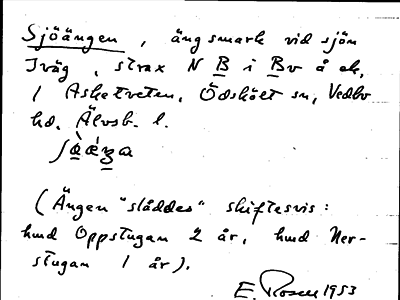 Sjöängen, ängsmark vid sjön
Iväg, strax N B i Bv å ek,
/ Asketveten, Ödskölt sn, Vedbo
hd. Älvsb. l.
(Ängen "slåddes" skiftesvis:
hud Oppstugan 2 år, hud Ner-
stugan 1 år).
E. Rosen 1953